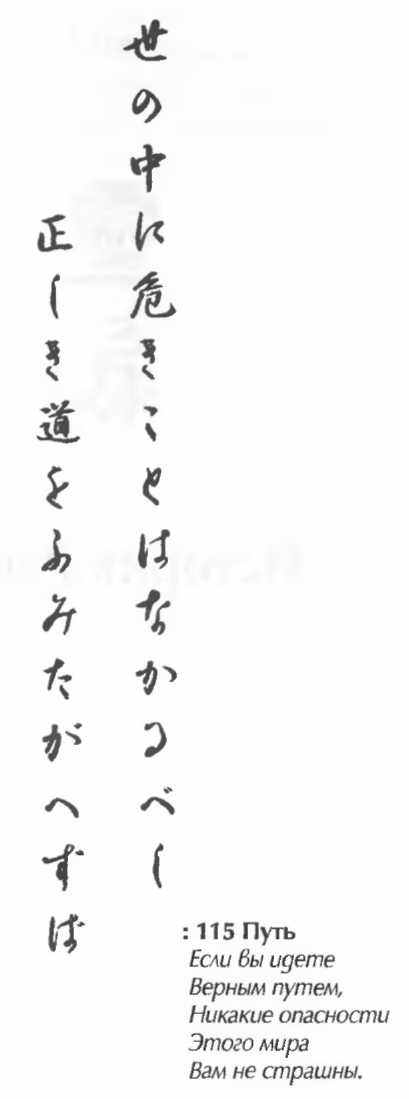 世の中に危きことはなかるべし
正しき道をふみたがへずば
: 115 Путь
Если вы идете
Верным путем,
Никакие опасности
Этого мира
Вам не страшны.